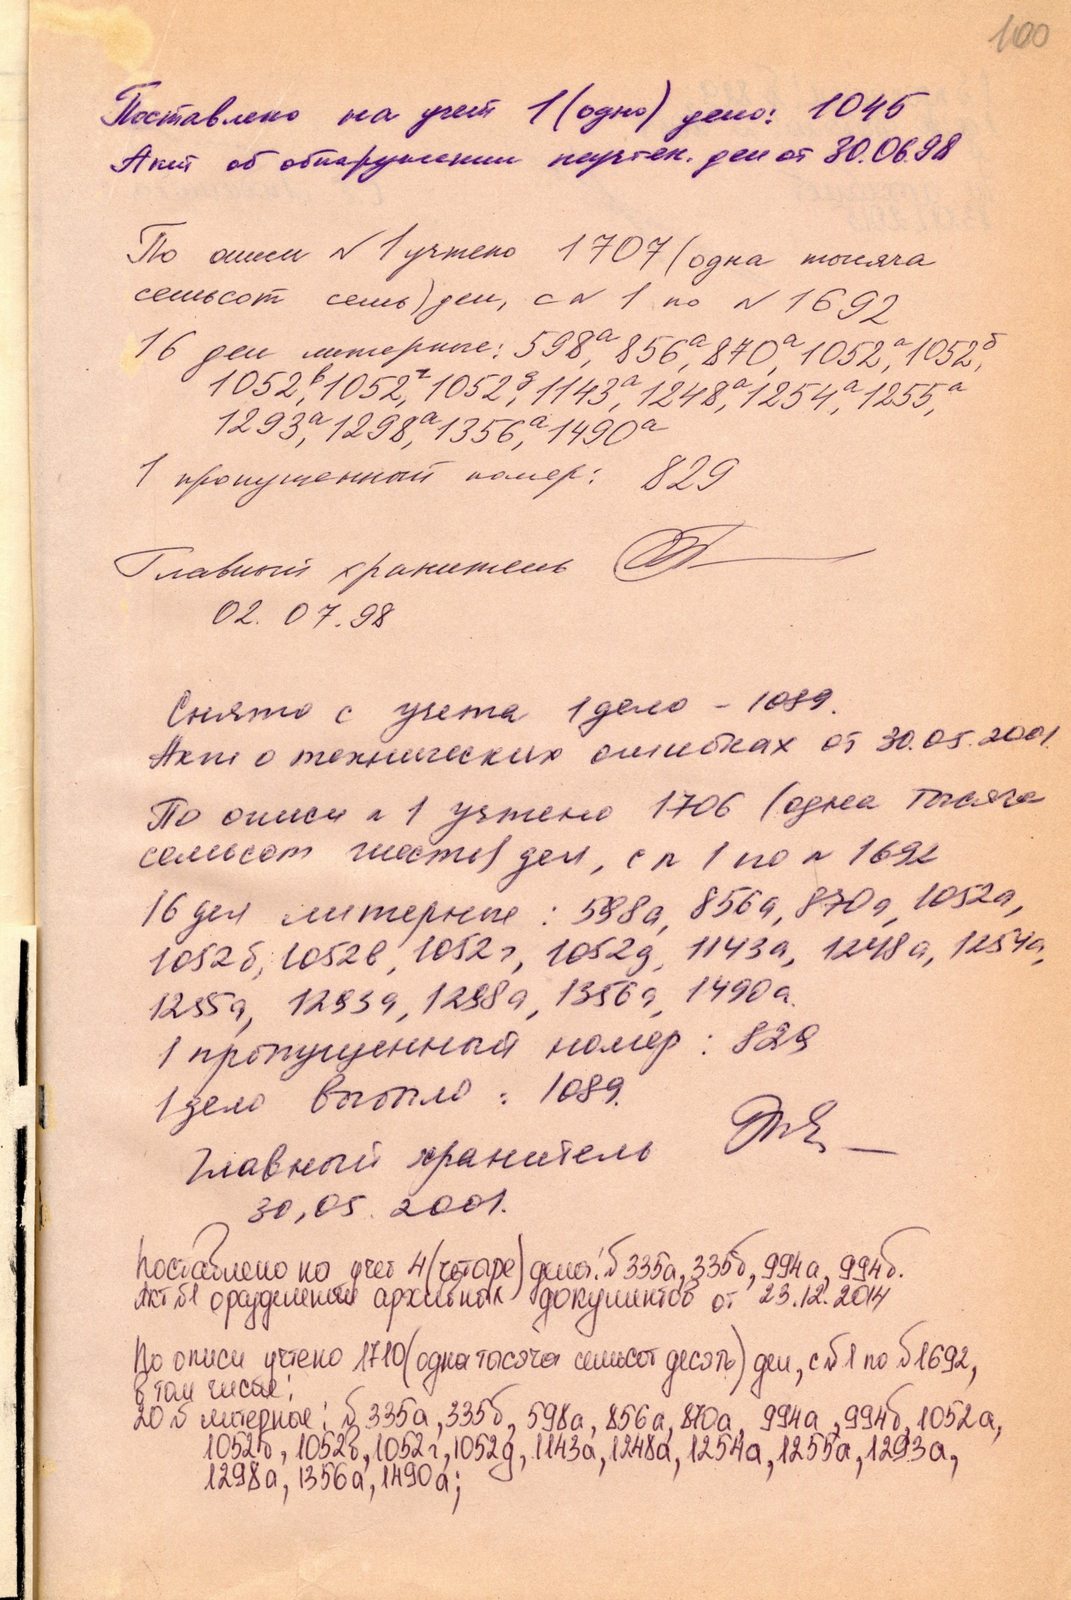 100
Поставлено на учет 1 (одно) дело: 1045
Акт об обнаружении неучтен. дел от 30.06.98
По описи № 1 учтено 1707 (одна тысяча
семьсот семь) дел, с № 1 по № 1692
16 дел литерные: 598а, 856а, 870а, 1052а, 1052б,
1052в, 1052г, 1052д, 1143а, 1248а, 1254а, 1255а,
1293а, 1298а, 1356а, 1490а
1 пропущенный номер: 829
Главный хранитель
02.07.98
Снято с учета 1 дело - 1089.
Акт о технических ошибках от 30.05.2001.
По описи № 1 учтено 1706 (одна тысяча
семьсот шесть) дел, с № 1 по № 1692
16 дел литерные: 598а, 856а, 870а, 1052а,
1052б, 1052в, 1052г, 1052д, 1143а, 1248а, 1254а,
1255а, 1293а, 1298а, 1356а, 1490а.
1 пропущенный номер: 829
1 дело выбыло: 1089.
Главный хранитель
30.05.2001.
Поставлено на учет 4 (четыре) дела: № 335а, 335б, 994а, 994б.
Акт №1 о разделении архивных документов от 23.12.2014
По описи учтено 1710 (одна тысяча семьсот десять) дел, с № 1 по № 1692,
в том числе:
20 № литерные: № 335а, 335б, 598а, 856а, 870а, 994а, 994б, 1052а,
1052б, 1052в, 1052г, 1052д, 1143а, 1248а, 1254а, 1255а, 1293а,
1298а, 1356а, 1490а;